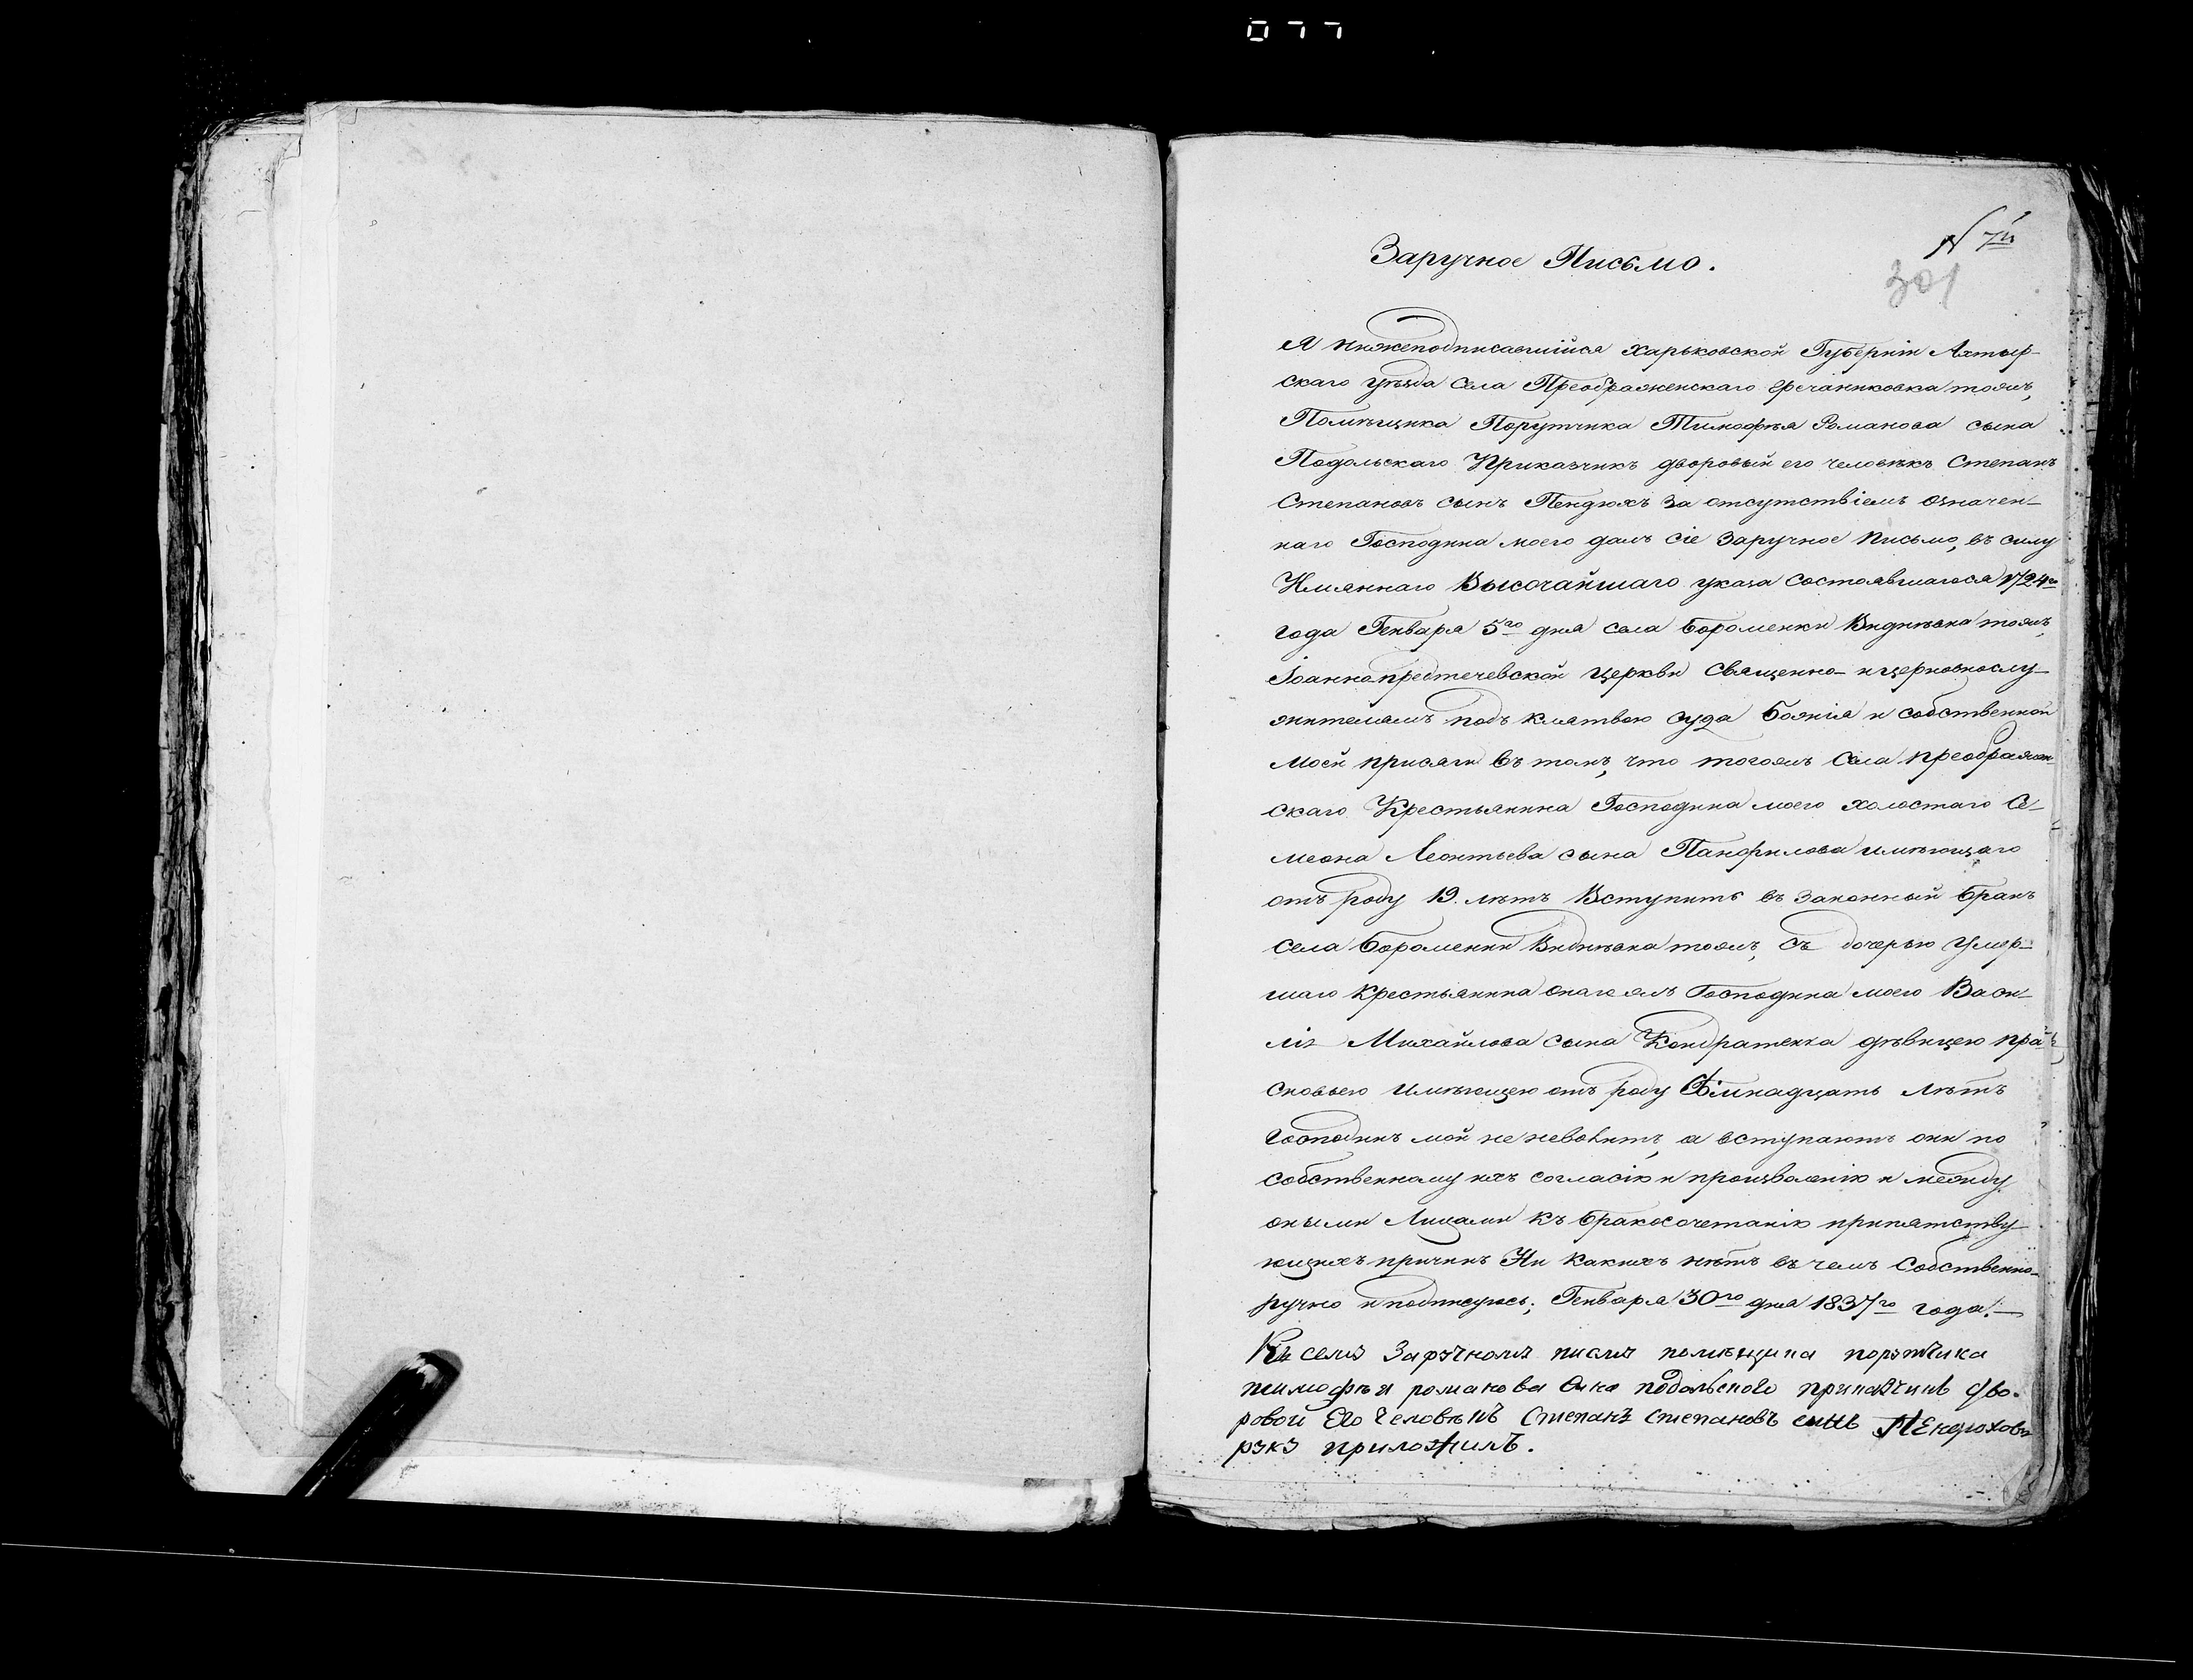 077
N 7й
301
Заручное Письмо.
Я нижеподписавшійся Харьковской Губерніи Ахтыр-
скаго уѣзда Села Преображенскаго Гречаниковка тожъ,
Помѣщика Порутчика Тимофѣя Романова сына
Подольскаго Приказчикъ дворовый его человѣкъ Степанъ
Степановъ сынъ Пендюхъ За отсутствіемъ означен-
наго Господина моего далъ сіе Заручное Письмо, въ силу
Имяннаго Высочайшаго указа состоявшагося 1724го
года Генваря 5го дня села Бороменки Видневка тожъ,
Іоаннопредтечевской Церкви Священно- и церковнослу-
жителямъ подъ клятвою суда Божія и собственной
моей присяги въ томъ, что тогожъ Села Преображен-
скаго Крестьянина Господина моего холостаго Се-
меона Леонтьева сына Панфилова имѣющаго
отъ роду 19. лѣтъ Вступить въ законный бракъ
села Бороменки Видневка тожъ, съ дочерью умер-
шаго Крестьянина онагожъ Господина моего Васи-
лія Михайлова сына Кондратенка дѣвицею Пра-
сковьею Имѣющею отъ роду лѣтъ
Господинъ мой не неволитъ, а вступаютъ они по
собственному ихъ согласію и произволенію и между
оными Лицами къ бракосочетанію припятству-
ющихъ причинъ Ни какихъ нѣтъ въ чемъ Собственно-
ручно и подписуюсь; Генваря 30го дня 1837го года.
Къ семѫ Зарѫчномѫ писмѫ помѣщика порѫтчика
тимофѣя романова сына подольского приказчикъ дво-
ровой Его Человѣкъ Степанъ степановъ синъ Пендюховъ
рѫкѫ приложилъ.